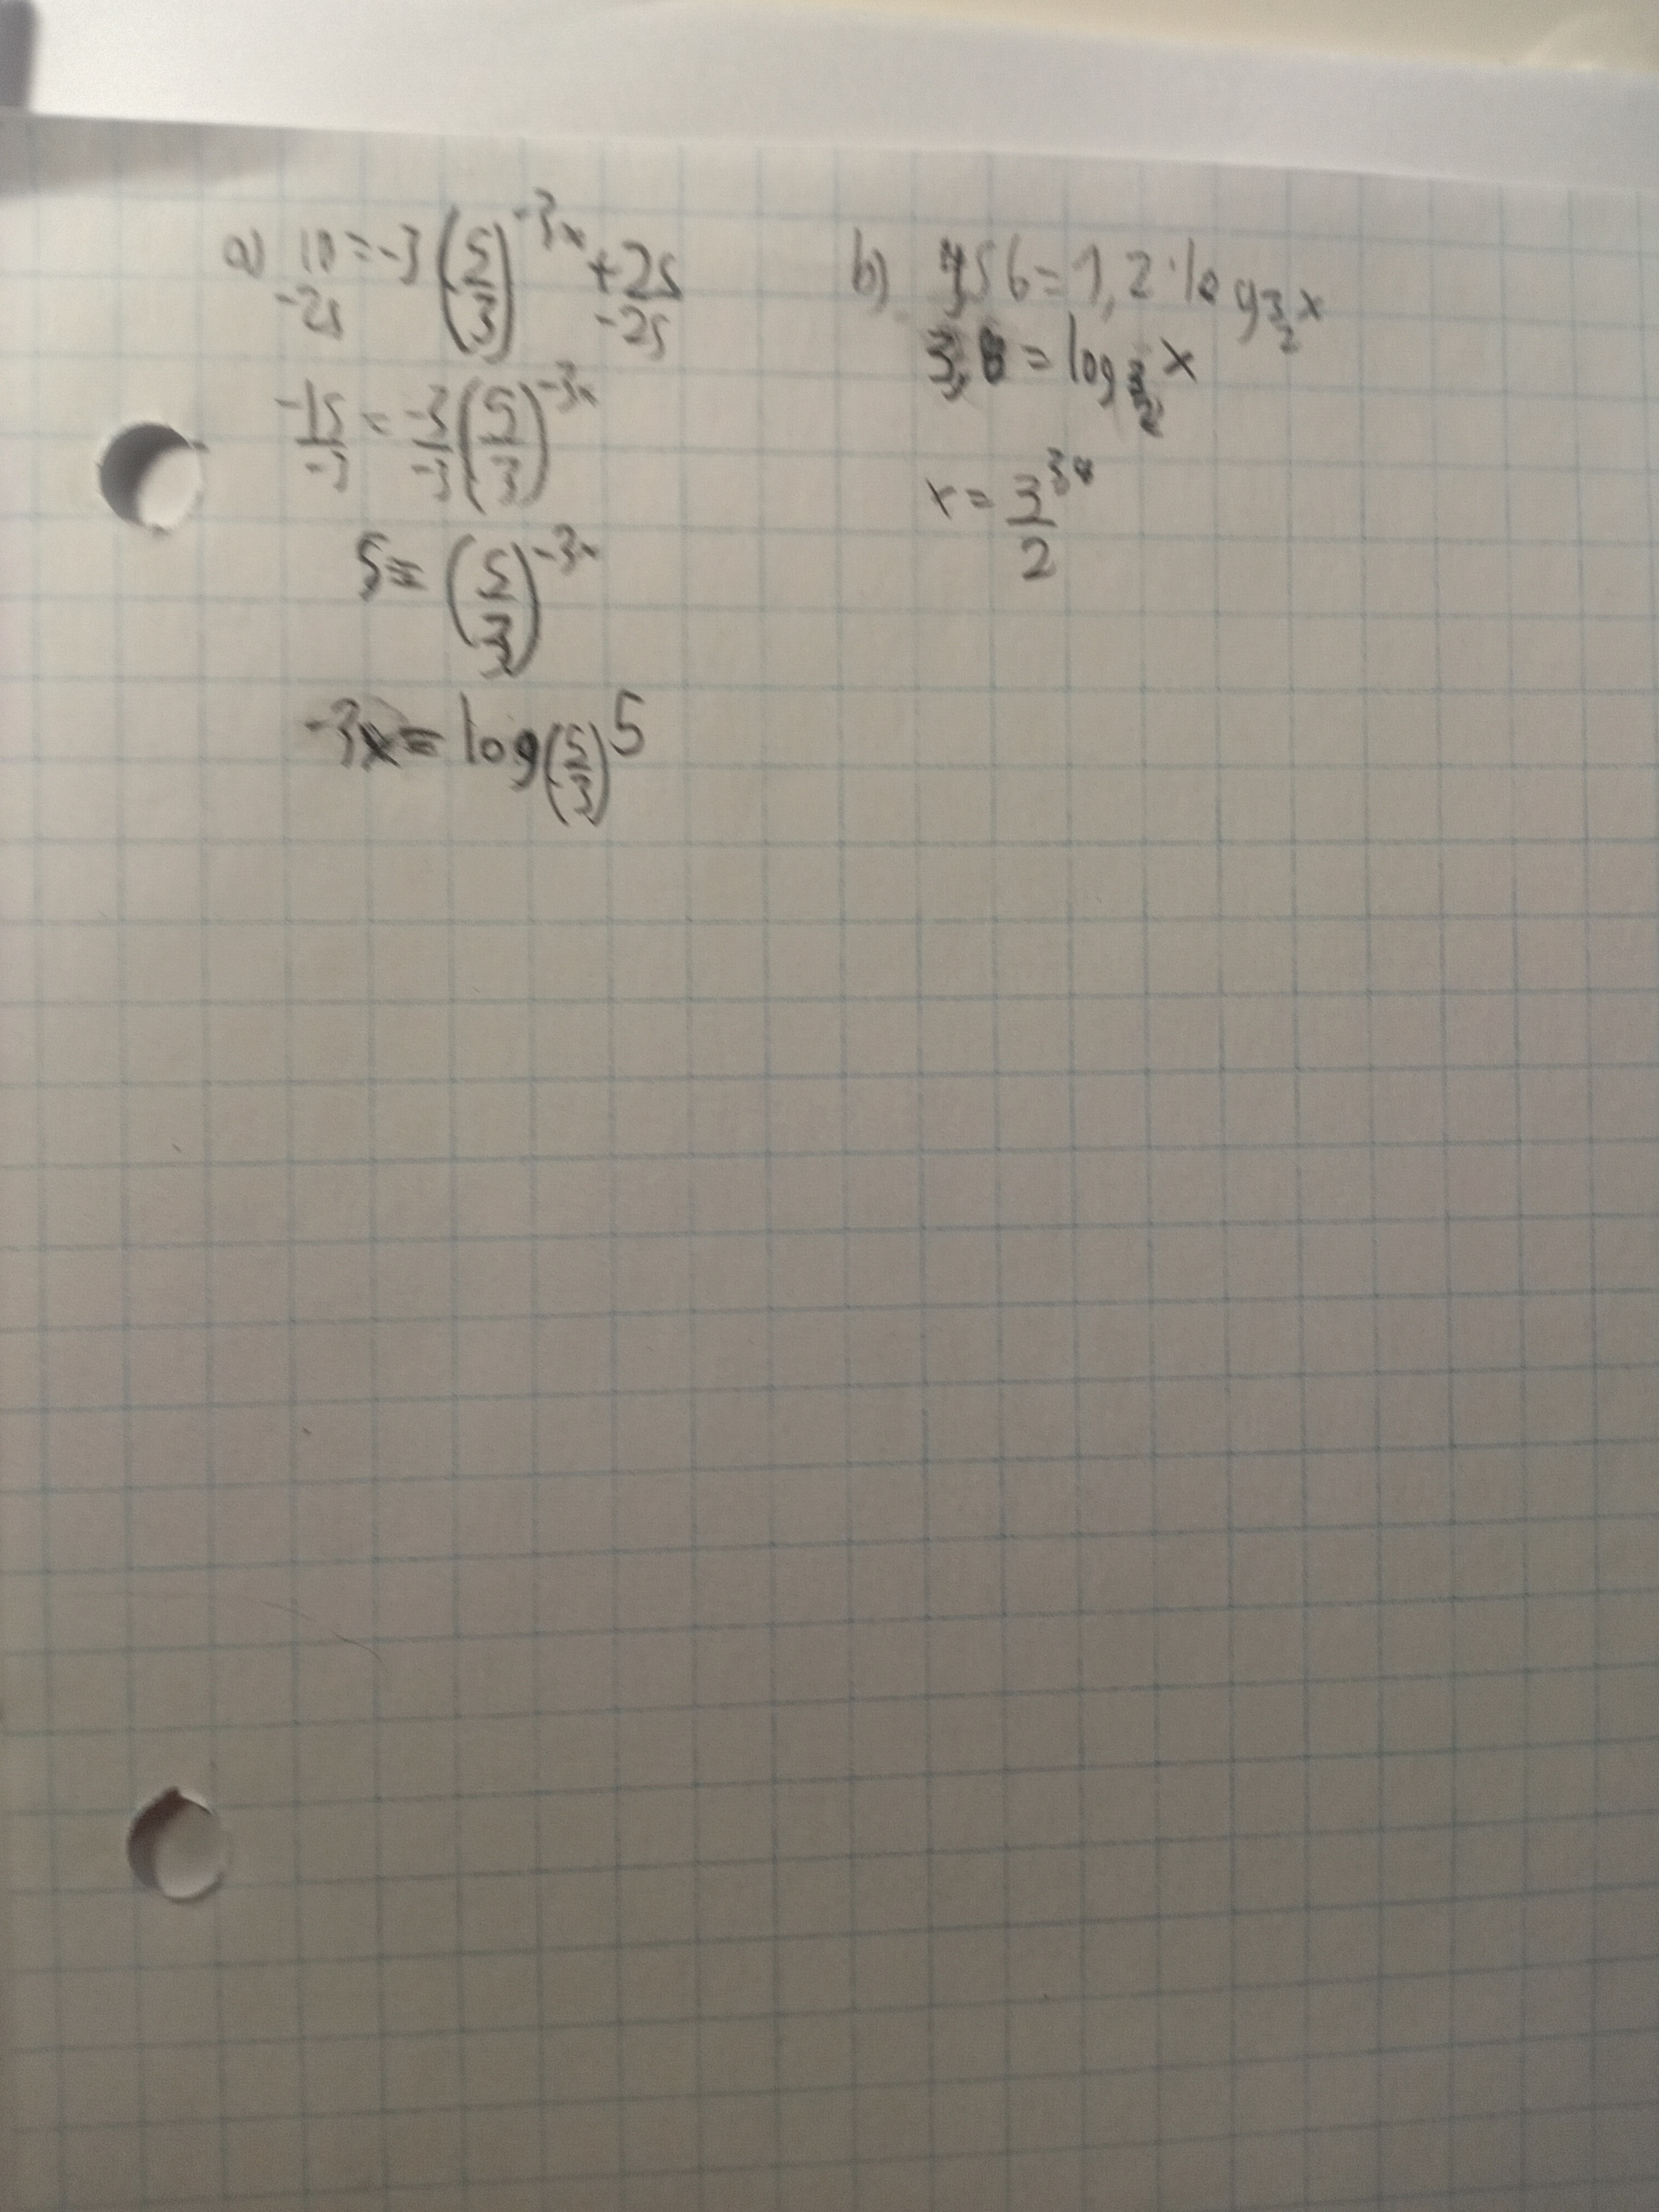 a) 10 = -3 (5/3)^-3x + 25
-25 -25
-15/-3 = -3/-3 (5/3)^-3x
5 = (5/3)^-3x
-3x = log(5/3) 5
b) 456 = 1,2 · log 3/2 x
= log 3/2 x
x = 3/2